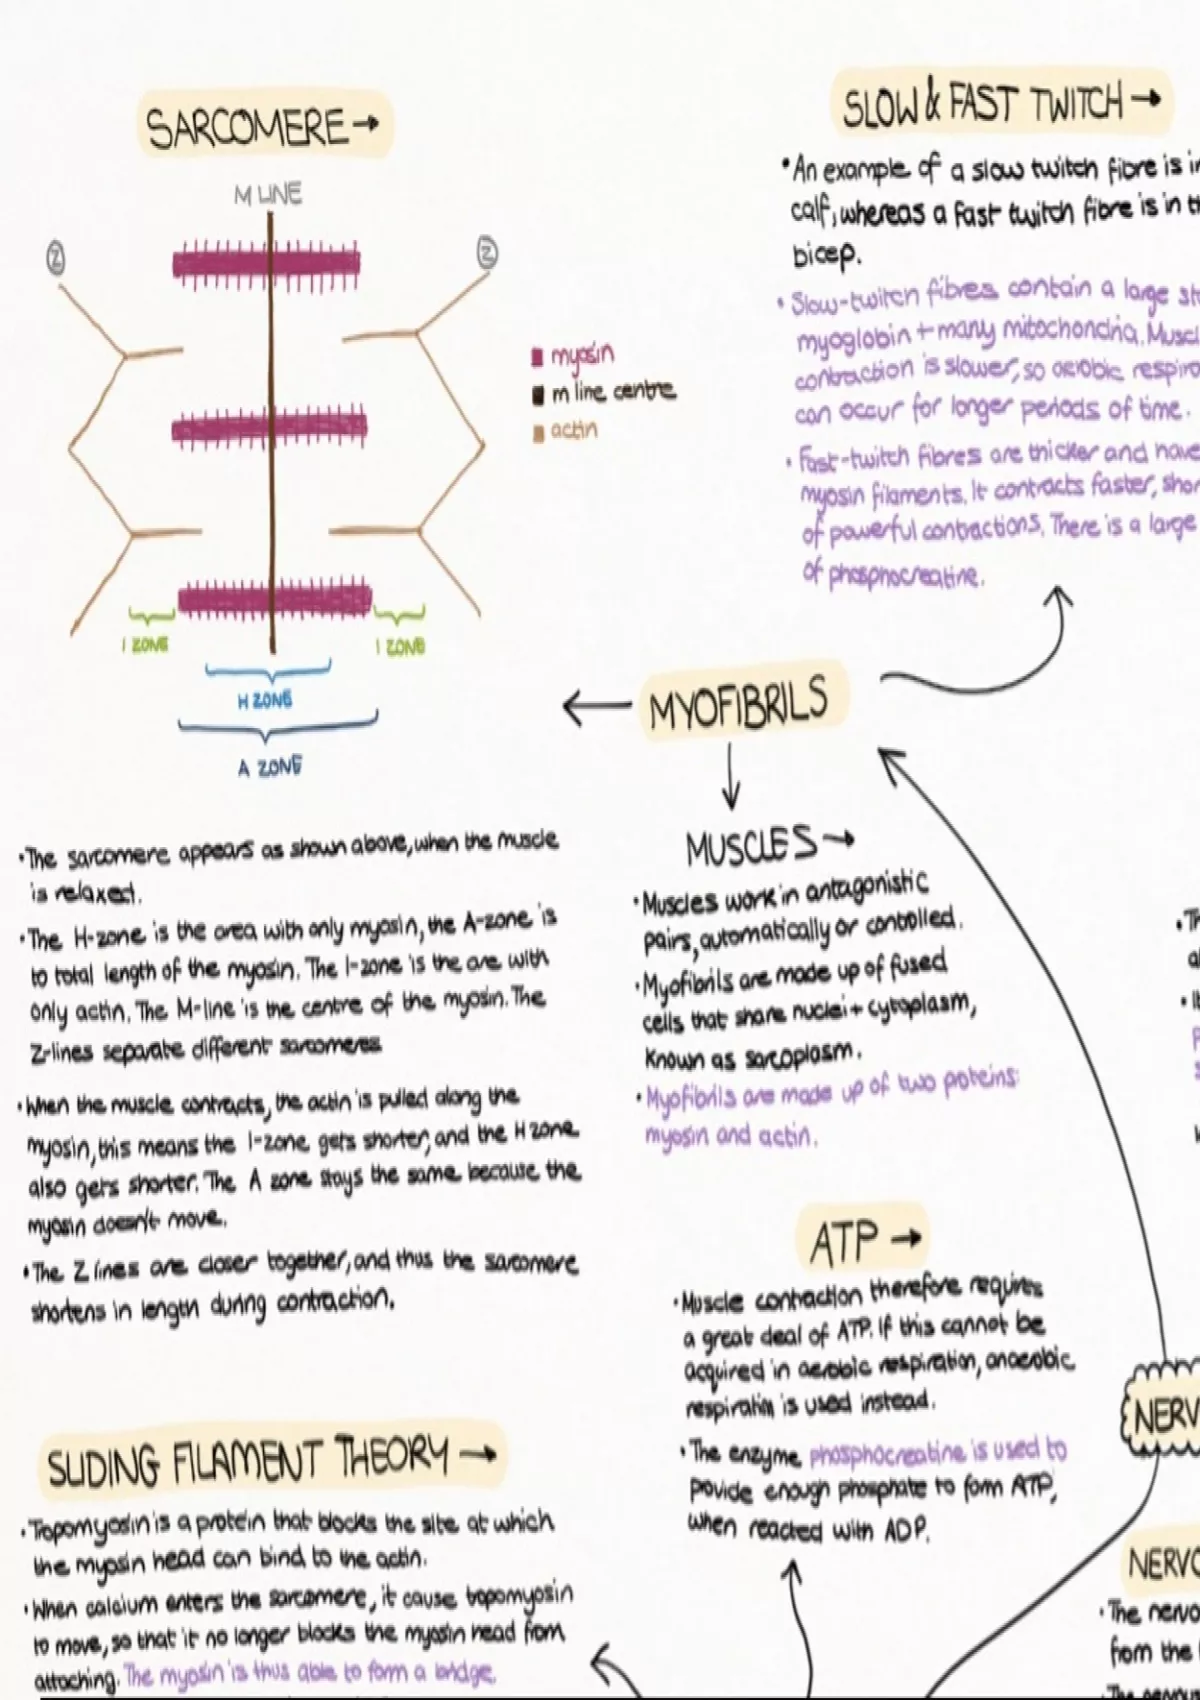 SARCOMERE →
M LINE
Z
Z
myosin
m line centre
actin
I ZONE
I ZONE
H ZONE
A ZONE
• The sarcomere appears as shown above, when the muscle
is relaxed.
• The H-zone is the area with only myosin, the A-zone is
to total length of the myosin. The I-zone is the are with
only actin. The M-line is the centre of the myosin. The
Z-lines separate different sarcomeres
• When the muscle contracts, the actin is pulled along the
myosin, this means the I-zone gets shorter, and the H zone
also gets shorter. The A zone stays the same because the
myosin doesn't move.
• The Z lines are closer together, and thus the sarcomere
shortens in length during contraction.
SLIDING FILAMENT THEORY →
• Tropomyosin is a protein that blocks the site at which
the myosin head can bind to the actin.
• When calcium enters the sarcomere, it cause tropomyosin
to move, so that it no longer blocks the myosin head from
attaching. The myosin is thus able to form a bridge.
SLOW & FAST TWITCH →
• An example of a slow twitch fibre is in
calf, whereas a fast twitch fibre is in th
bicep.
• Slow-twitch fibres contain a large st
myoglobin + many mitochondria. Muscl
contraction is slower, so aerobic respira
can occur for longer periods of time.
• Fast-twitch fibres are thicker and have
myosin filaments. It contracts faster, shor
of powerful contractions. There is a large
of phosphocreatine.
MYOFIBRILS
MUSCLES →
• Muscles work in antagonistic
pairs, automatically or controlled.
• Myofibrils are made up of fused
cells that share nuclei + cytoplasm,
known as sarcoplasm.
• Myofibrils are made up of two proteins:
myosin and actin.
ATP →
• Muscle contraction therefore requires
a great deal of ATP. If this cannot be
acquired in aerobic respiration, anaerobic
respiration is used instead.
• The enzyme phosphocreatine is used to
povide enough phosphate to form ATP,
when reacted with ADP.
NERV
NERVO
• The nervo
from the
• The nervous